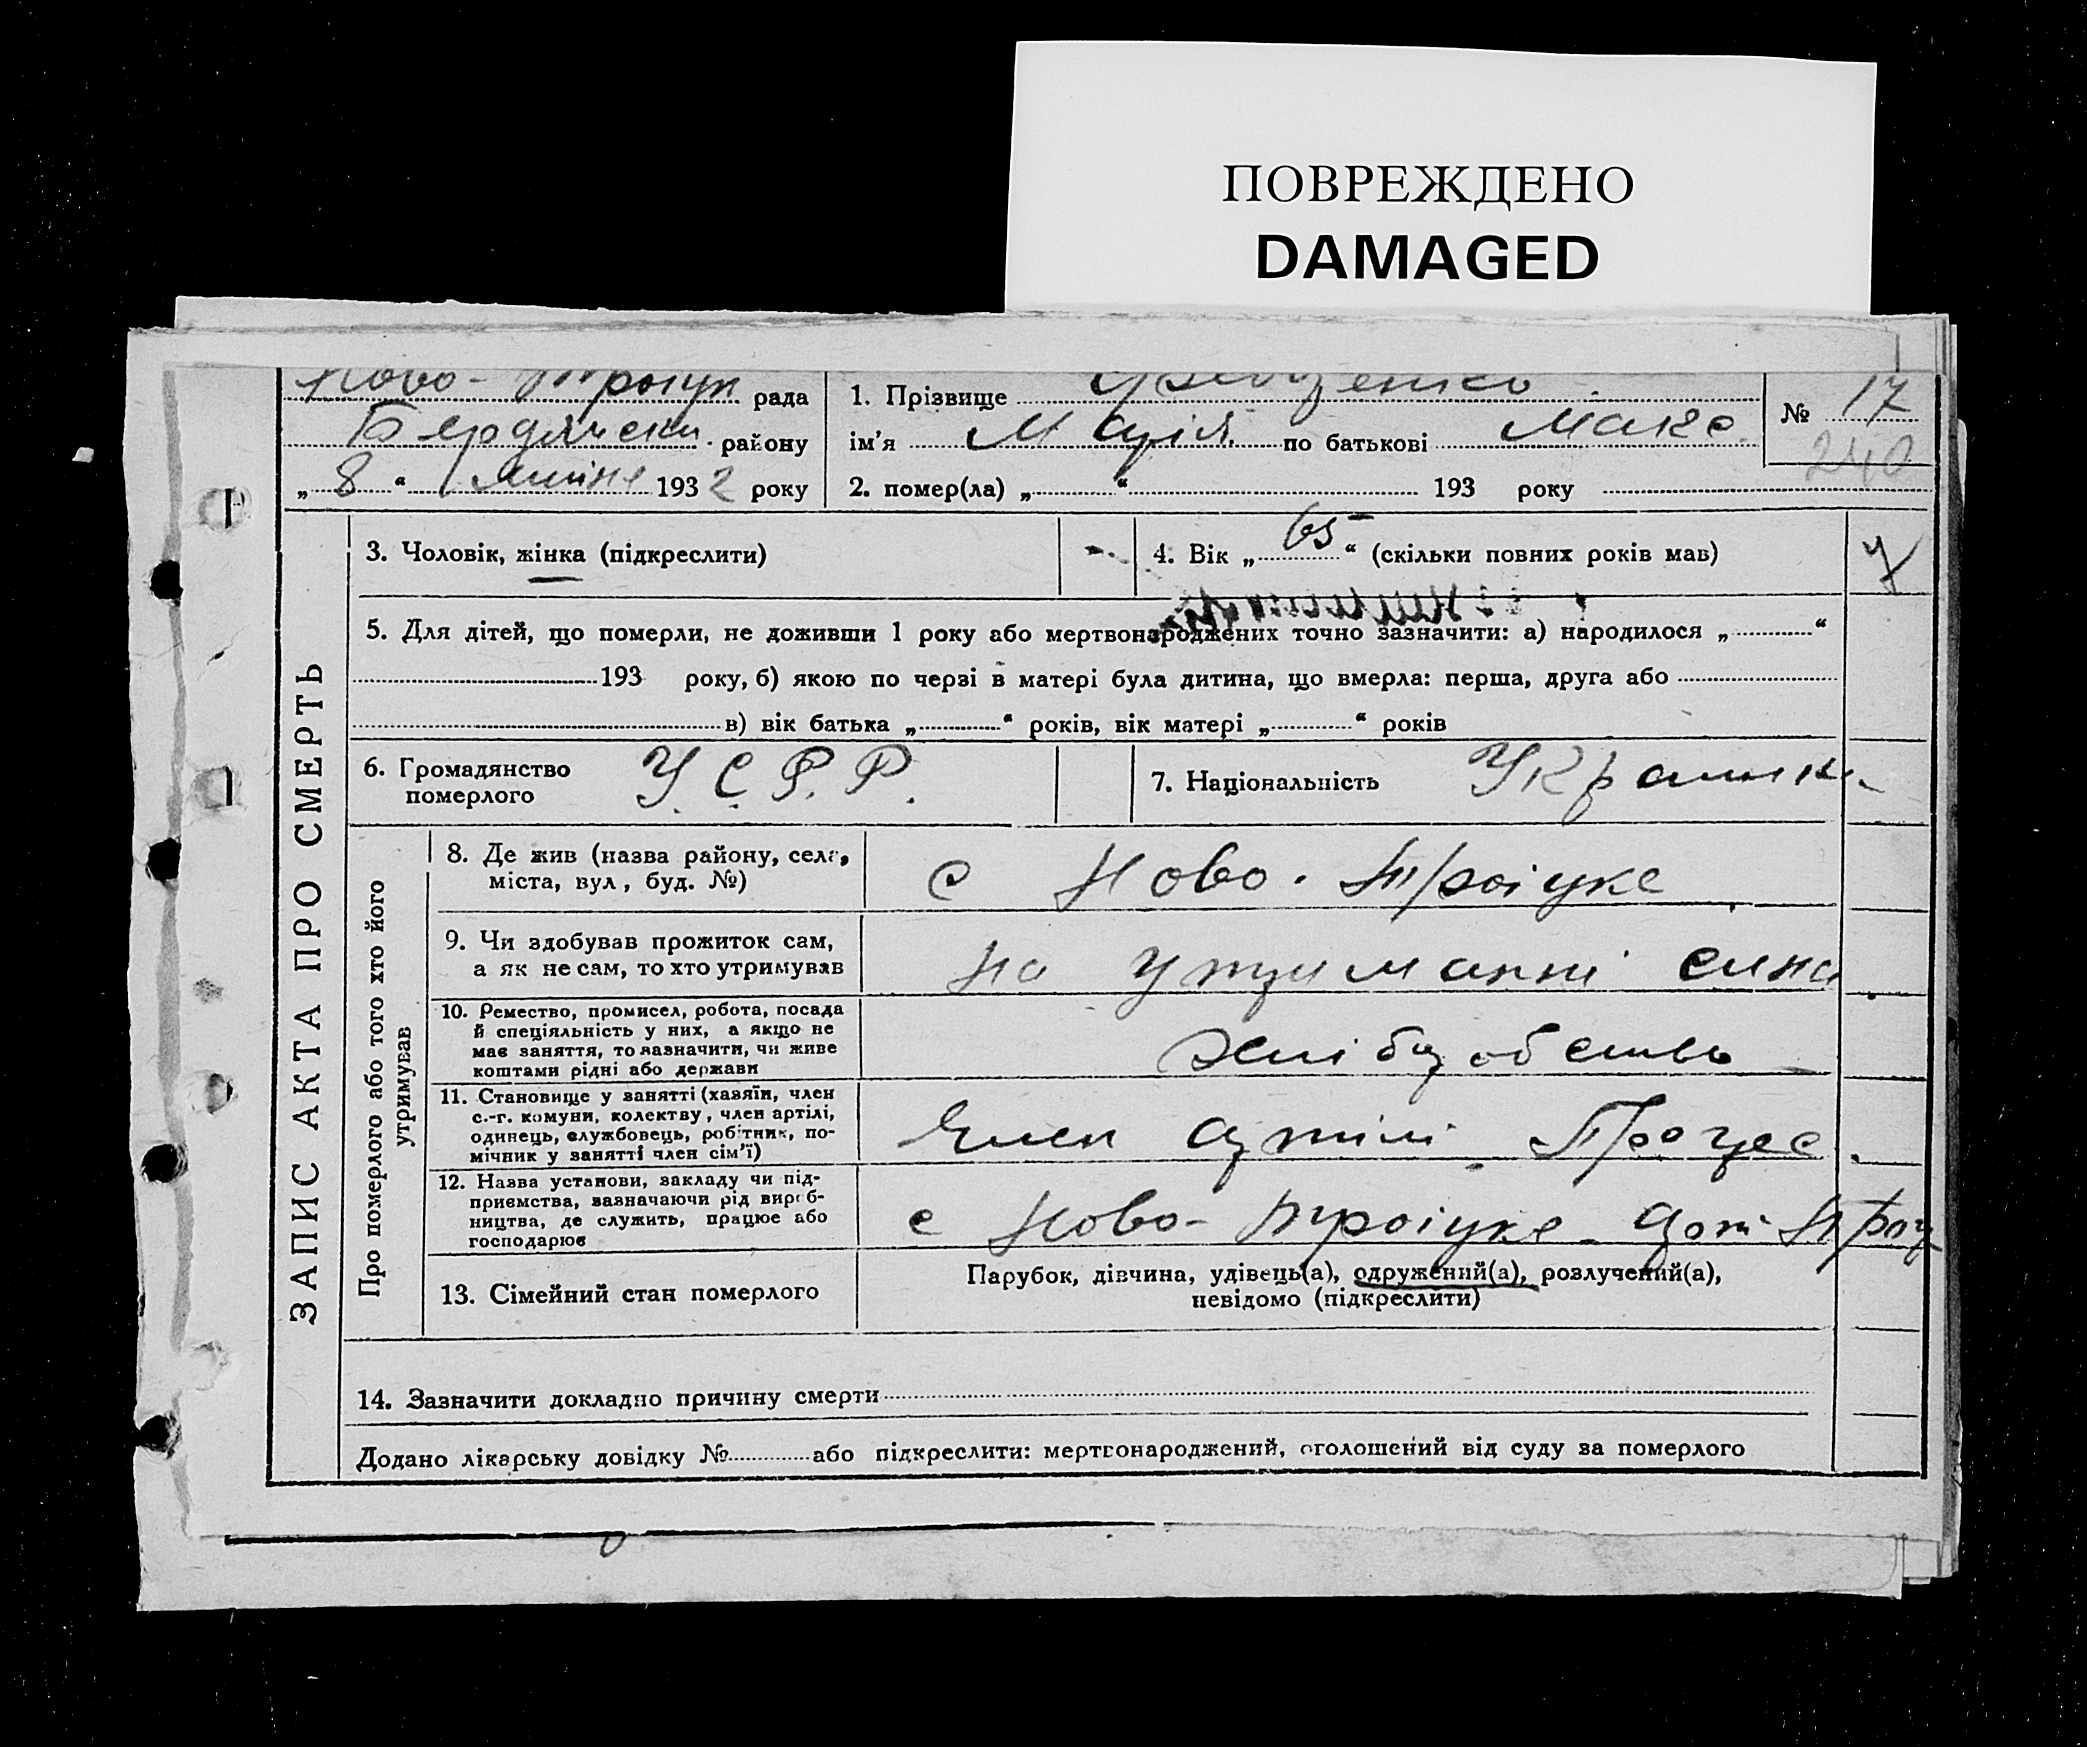 ПОВРЕЖДЕНО
DAMAGED
Ново- рада
Бердянськ. району
„ 8 “ 1932 року
1. Прізвище
ім'я Марія по батькові Мака.
№ 17
240
2. помер(ла) „ “ 193 року
ЗАПИС АКТА ПРО СМЕРТЬ
3. Чоловік, жінка (підкреслити)
4. Вік „ 65 “ (скільки повних років мав)
7
5. Для дітей, що померли, не доживши 1 року або мертвонароджених точно зазначити: а) народилося „ “
193 року, б) якою по черзі в матері була дитина, що вмерла: перша, друга або
в) вік батька „ “ років, вік матері „ “ років
6. Громадянство
померлого
У.С.Р.Р.
7. Національність
Україн.
Про померлого або того хто його
утримував
8. Де жив (назва району, села,
міста, вул, буд. №)
с Ново-Троіцке
9. Чи здобував прожиток сам,
а як не сам, то хто утримував
на утриманні сина
10. Ремество, промисел, робота, посада
й спеціяльність у них, а якщо не
має заняття, то зазначити, чи живе
коштами рідні або держави
11. Становище у занятті (хазяїн, член
с.-г. комуни, колектву, член артілі,
одинець, службовець, робітник, по-
мічник у занятті член сім'ї)
Член артілі
12. Назва установи, закладу чи під-
приємства, зазначаючи рід вироб-
ництва, де служить, працює або
господарює
с Ново-Троіцке
13. Сімейний стан померлого
Парубок, дівчина, удівець(а), одружений(а), розлучений(а),
невідомо (підкреслити)
14. Зазначити докладно причину смерти
Додано лікарську довідку № або підкреслити: мертвонароджений, оголошений від суду за померлого